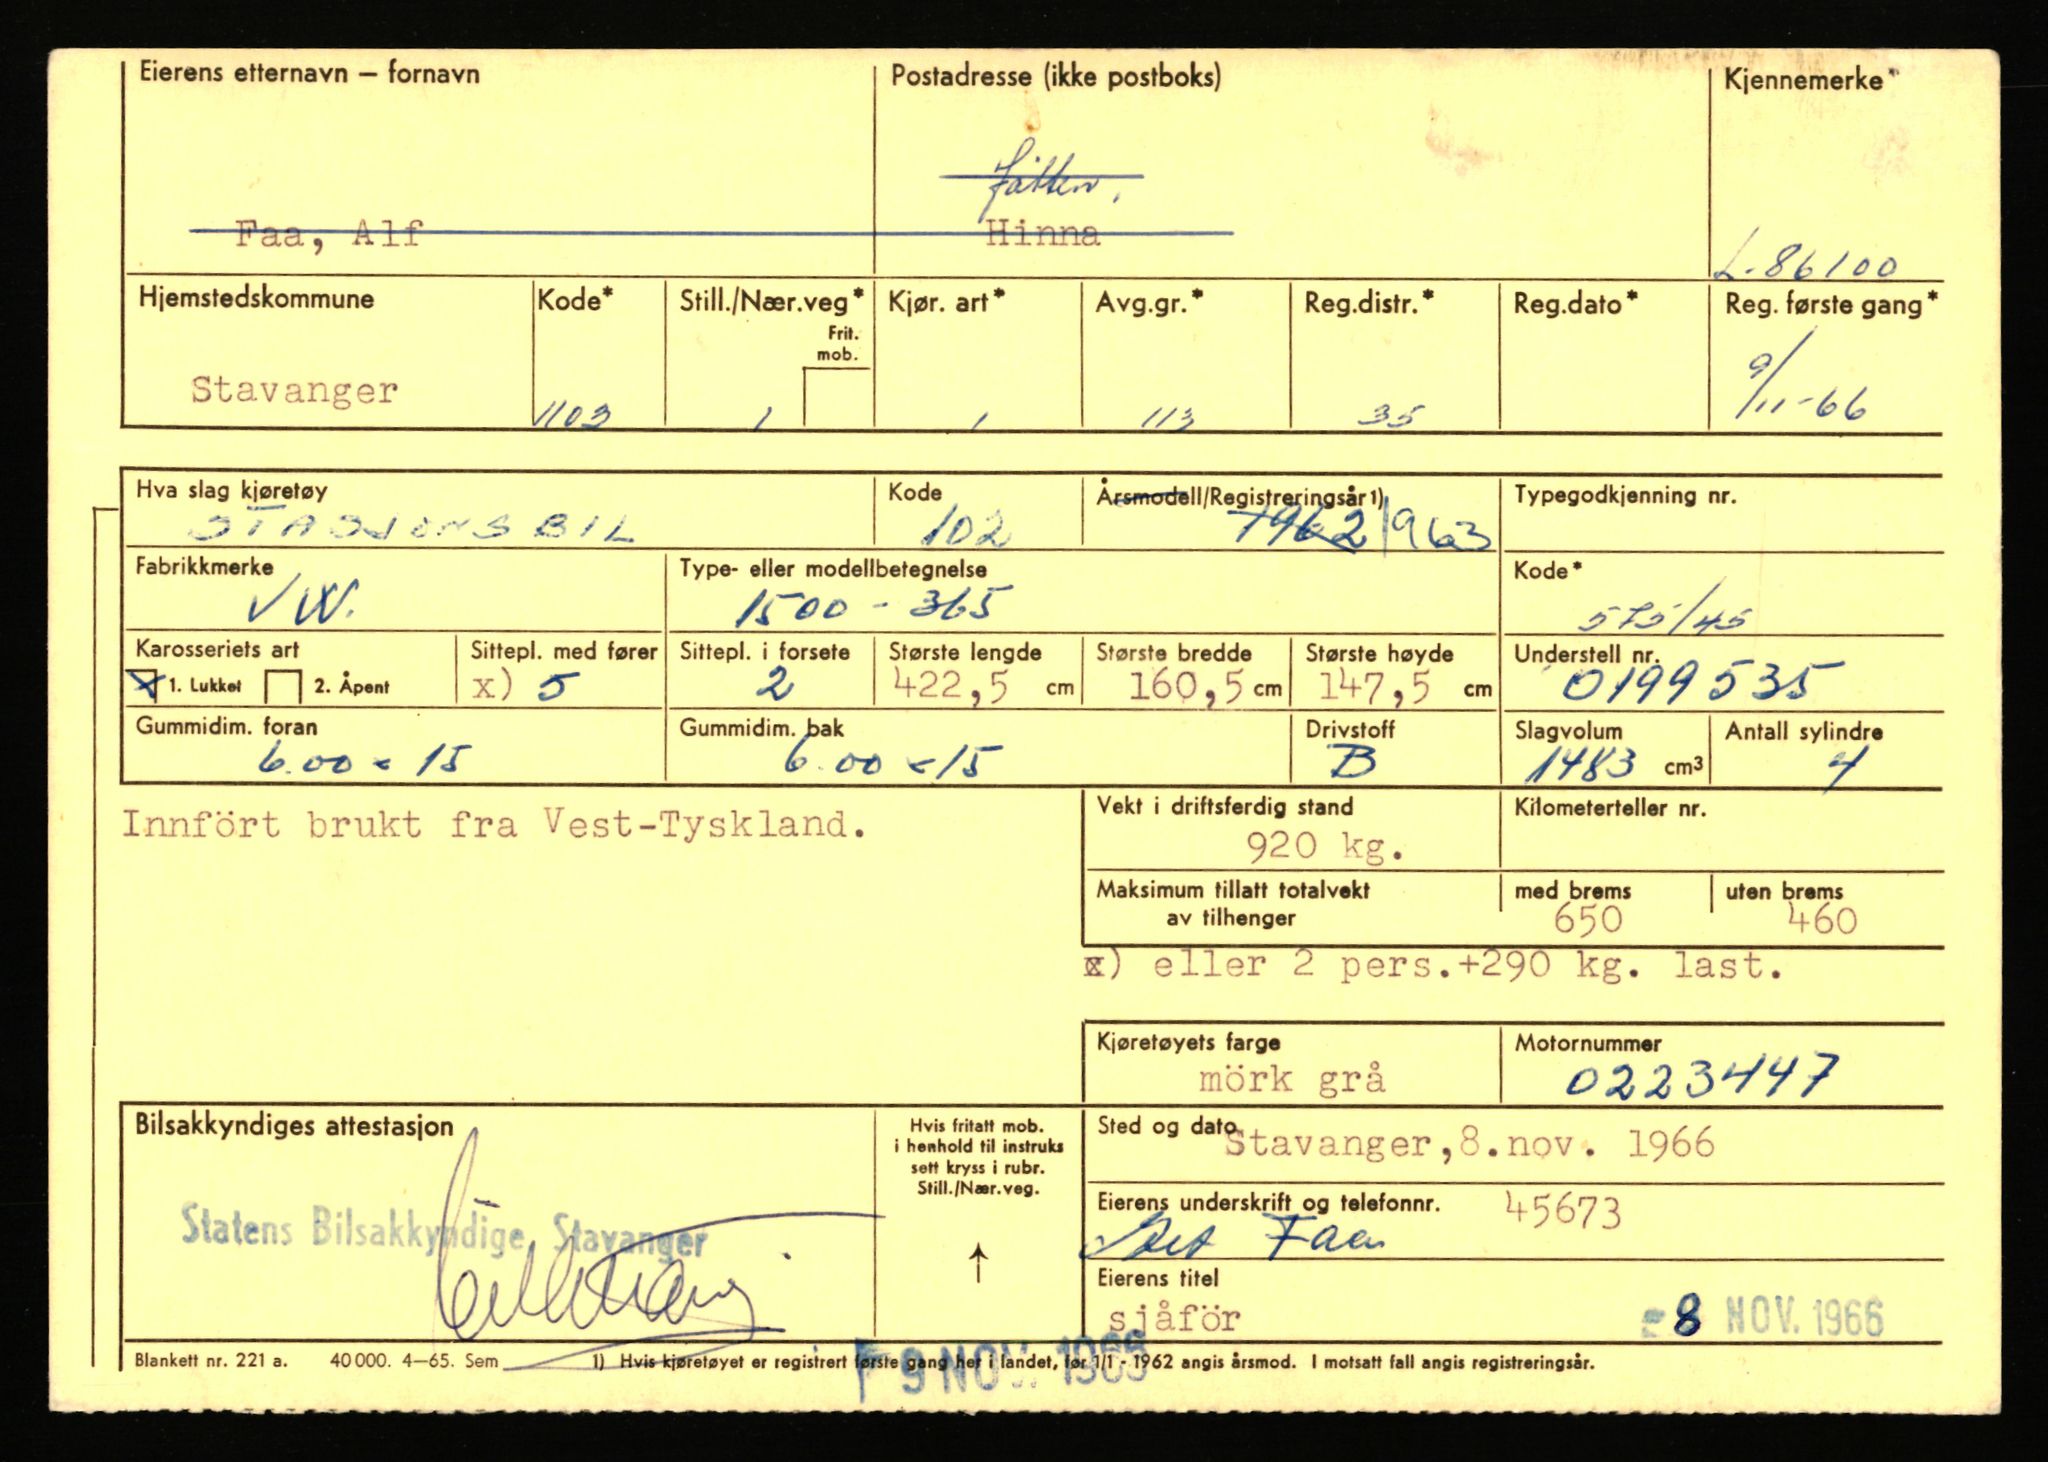 Eierens etternavn – fornavn Postadresse (ikke postboks) Kjennemerke*
Jåtten,
Faa, Alf Hinna L-86100
Hjemstedskommune Kode* Still./Nær.veg* Kjør. art* Avg.gr.* Reg.distr.* Reg.dato* Reg. første gang*
Frit.
mob.
Stavanger 1103 1 1 113 35 9/11-66
Hva slag kjøretøy Kode Årsmodell/Registreringsår 1) Typegodkjenning nr.
STASJONSBIL 102 1962 1963
Fabrikkmerke Type- eller modellbetegnelse Kode*
VW. 1500 - 365 575/45
Karosseriets art Sittepl. med fører Sittepl. i forsete Største lengde Største bredde Største høyde Understell nr.
x 1. Lukket 2. Åpent x) 5 2 422,5 cm 160,5 cm 147,5 cm 0199535
Gummidim. foran Gummidim. bak Drivstoff Slagvolum Antall sylindre
6.00 x 15 6.00 x 15 B 1483 cm3 4
Innfört brukt fra Vest-Tyskland.
Vekt i driftsferdig stand Kilometerteller nr.
920 kg.
Maksimum tillatt totalvekt med brems uten brems
av tilhenger 650 460
x) eller 2 pers.+290 kg. last.
Kjøretøyets farge Motornummer
mörk grå 0223447
Bilsakkyndiges attestasjon
Hvis fritatt mob.
i henhold til instruks
sett kryss i rubr.
Still./Nær.veg.
Sted og dato Stavanger,8.nov. 1966
Eierens underskrift og telefonnr. 45673
Statens Bilsakkyndige, Stavanger
Alf Faa
Eierens titel
sjåför
-8 NOV. 1966
F 9 NOV. 1966
Blankett nr. 221 a. 40 000. 4–65. Sem 1) Hvis kjøretøyet er registrert første gang her i landet, før 1/1 - 1962 angis årsmod. I motsatt fall angis registreringsår.